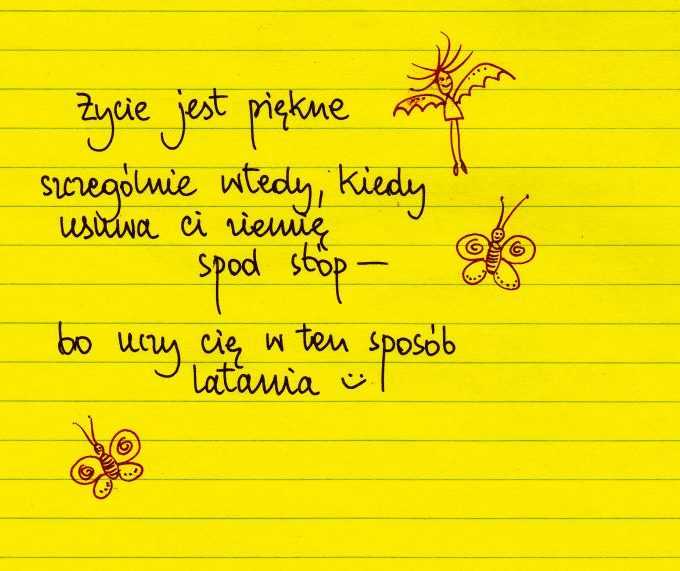 Życie jest piękne
szczególnie wtedy, kiedy
usuwa ci ziemię
spod stóp —
bo uczy cię w ten sposób
latania :)